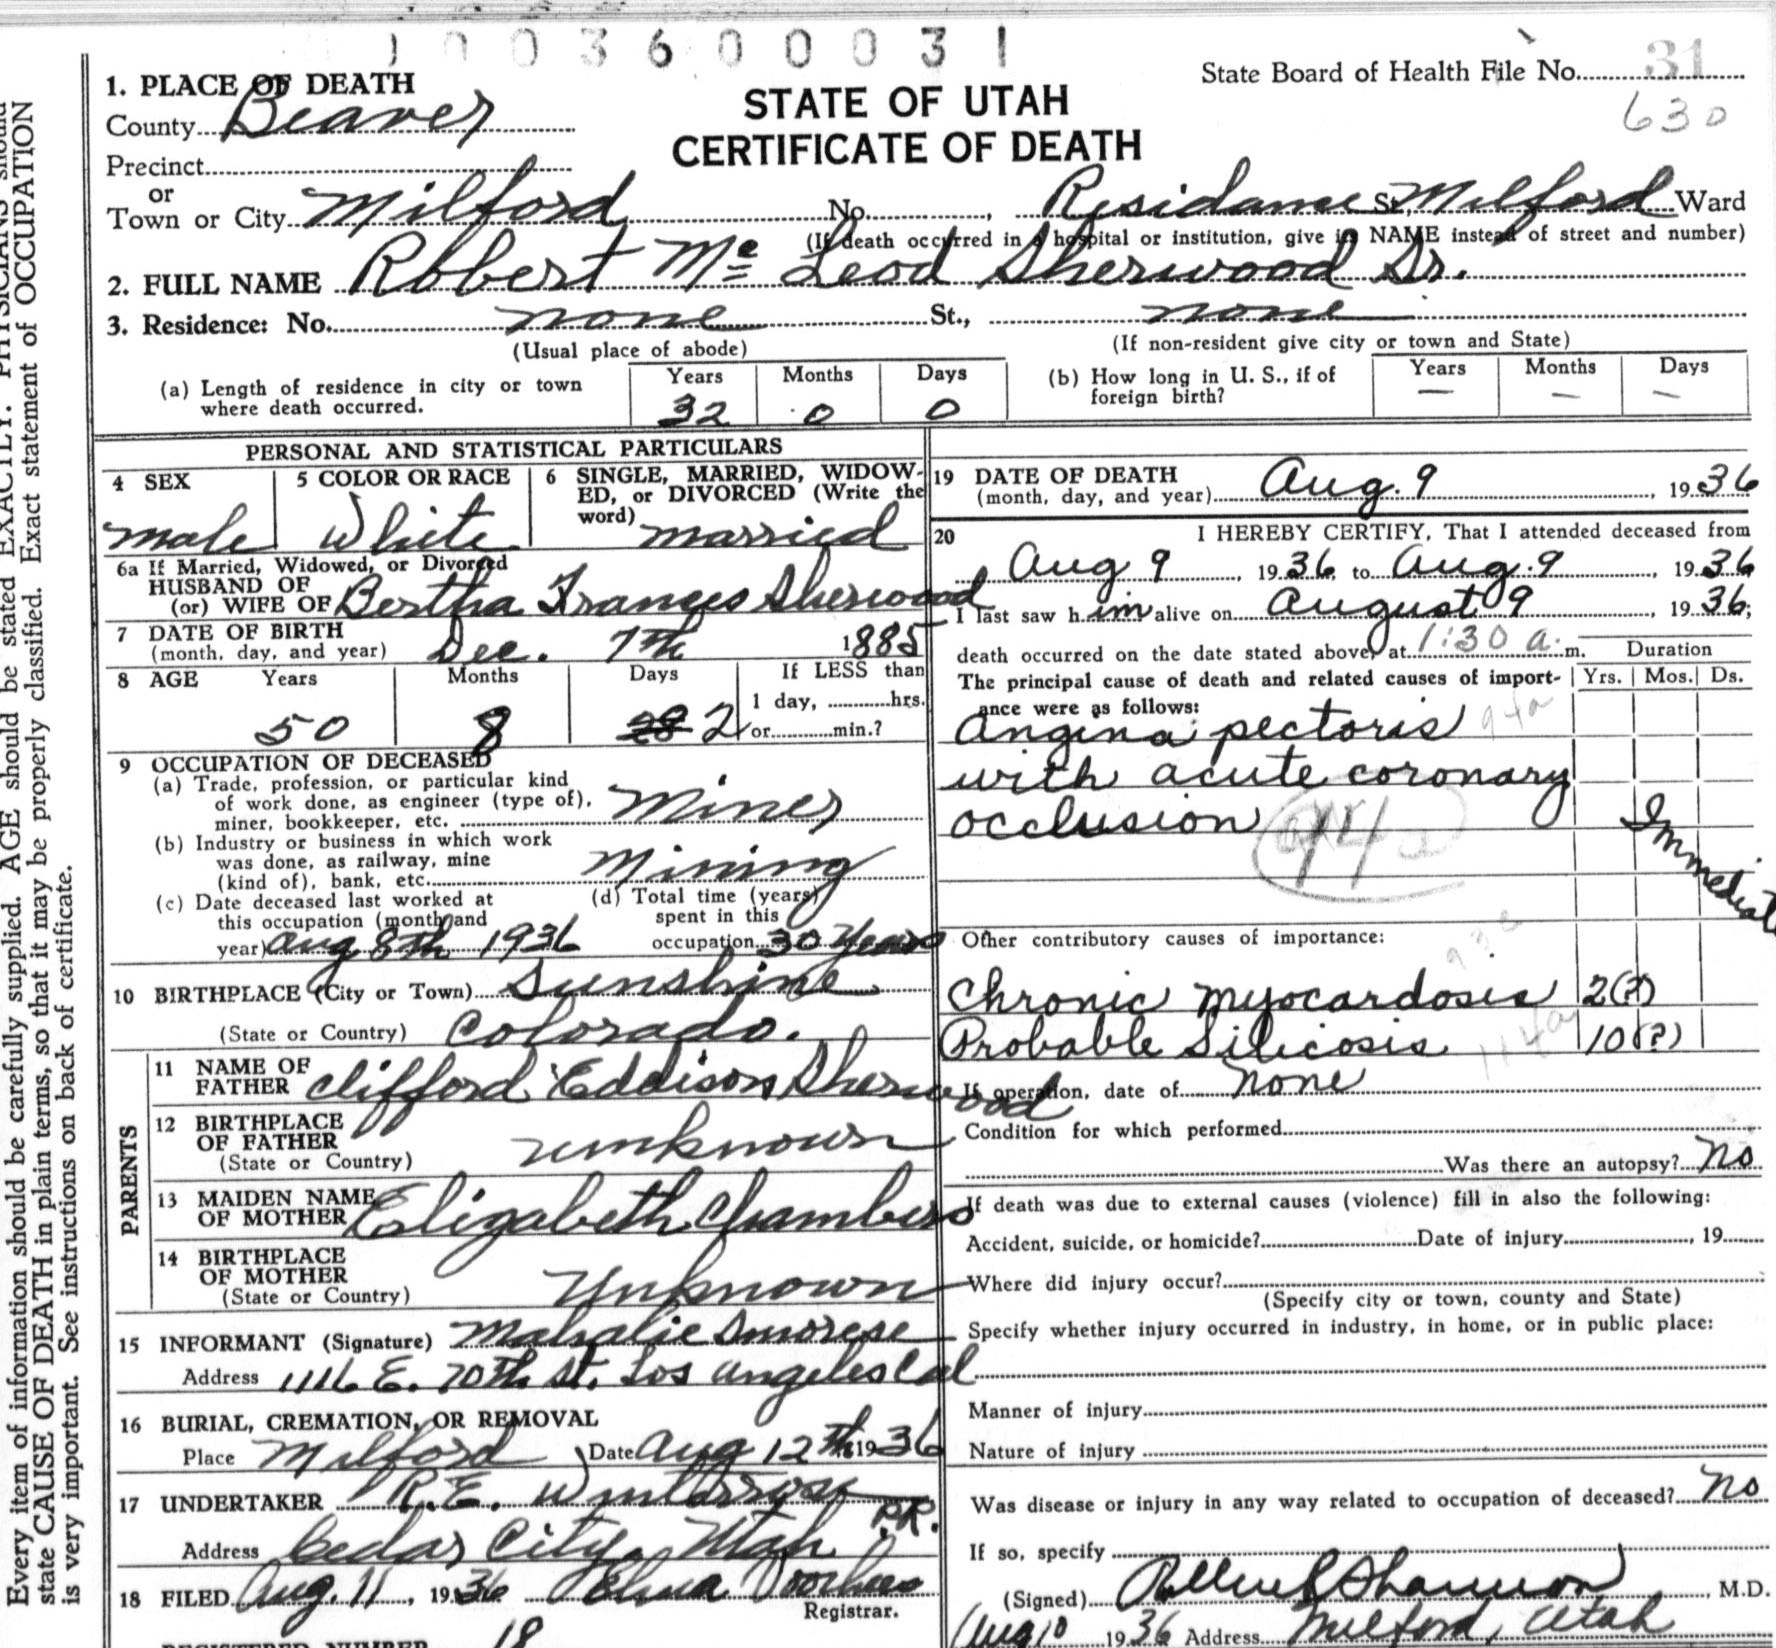 1003600031
State Board of Health File No. 31
630
STATE OF UTAH
CERTIFICATE OF DEATH
1. PLACE OF DEATH
County Beaver
Precinct
or
Town or City Milford No. , Residance St., Milford Ward
(If death occurred in a hospital or institution, give its NAME instead of street and number)
2. FULL NAME Robert Mc Leod Sherwood Sr.
3. Residence: No. none St., none
(Usual place of abode) (If non-resident give city or town and State)
(a) Length of residence in city or town where death occurred. Years 32 Months 0 Days 0
(b) How long in U. S., if of foreign birth? Years — Months — Days —
PERSONAL AND STATISTICAL PARTICULARS
4 SEX
male
5 COLOR OR RACE
White
6 SINGLE, MARRIED, WIDOW-
ED, or DIVORCED (Write the
word) married
6a If Married, Widowed, or Divorced
HUSBAND OF
(or) WIFE OF Bertha Frances Sherwood
7 DATE OF BIRTH
(month, day, and year) Dec. 7th 1885
8 AGE Years Months Days If LESS than
1 day, hrs.
50 8 2 or min.?
9 OCCUPATION OF DECEASED
(a) Trade, profession, or particular kind
of work done, as engineer (type of),
miner, bookkeeper, etc. Miner
(b) Industry or business in which work
was done, as railway, mine
(kind of), bank, etc. Mining
(c) Date deceased last worked at
this occupation (month and
year) Aug 8th 1936
(d) Total time (years)
spent in this
occupation 30 Years
10 BIRTHPLACE (City or Town) Sunshine
(State or Country) Colorado.
PARENTS
11 NAME OF
FATHER Clifford Eddison Sherwood
12 BIRTHPLACE
OF FATHER
(State or Country) unknown
13 MAIDEN NAME
OF MOTHER Elizabeth Chambers
14 BIRTHPLACE
OF MOTHER
(State or Country) Unknown
15 INFORMANT (Signature) Mahalie
Address 1116 E. 70th St. Los Angeles Cal
16 BURIAL, CREMATION, OR REMOVAL
Place Milford Date Aug 12th 1936
17 UNDERTAKER R.E.
P.R.
Address Cedar City, Utah
18 FILED Aug. 11, 1936 Voorhees
Registrar.
REGISTERED NUMBER 18
19 DATE OF DEATH
(month, day, and year) Aug. 9, 1936
20 I HEREBY CERTIFY, That I attended deceased from
Aug 9, 1936, to Aug. 9, 1936
I last saw him alive on August 9, 1936;
death occurred on the date stated above, at 1:30 a. m.
Duration
The principal cause of death and related causes of import- Yrs. Mos. Ds.
ance were as follows:
Angina pectoris 94a
with acute coronary
occlusion 94a
Immediate
Other contributory causes of importance:
Chronic Myocardosis 2(?)
Probable Silicosis 10(?)
114a
If operation, date of none
Condition for which performed
Was there an autopsy? No
If death was due to external causes (violence) fill in also the following:
Accident, suicide, or homicide? Date of injury , 19
Where did injury occur?
(Specify city or town, county and State)
Specify whether injury occurred in industry, in home, or in public place:
Manner of injury
Nature of injury
Was disease or injury in any way related to occupation of deceased? No
If so, specify
(Signed) Shannon, M.D.
Aug 10 1936 Address Milford, Utah
Every item of information should be carefully supplied. AGE should be stated EXACTLY. PHYSICIANS should
state CAUSE OF DEATH in plain terms, so that it may be properly classified. Exact statement of OCCUPATION
is very important. See instructions on back of certificate.